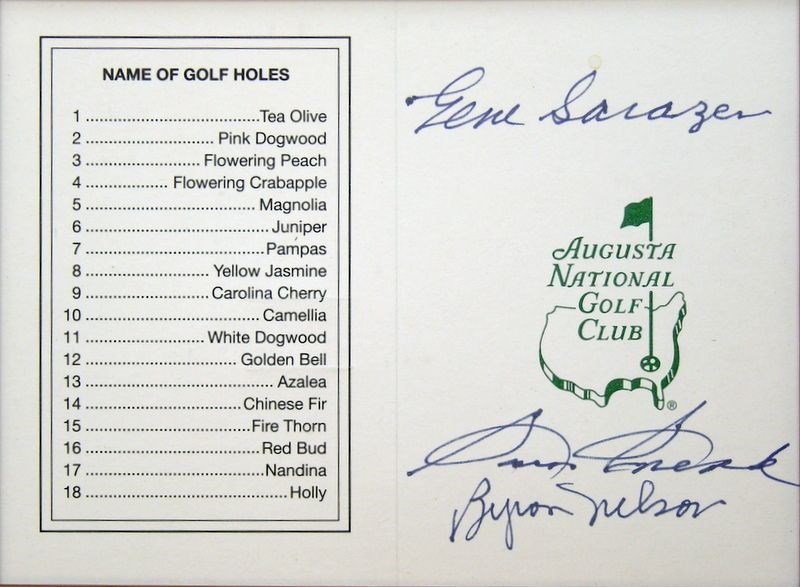 NAME OF GOLF HOLES
1 ........................................ Tea Olive
2 ............................. Pink Dogwood
3 .......................... Flowering Peach
4 .................. Flowering Crabapple
5 ....................................... Magnolia
6 .......................................... Juniper
7 ......................................... Pampas
8 ............................ Yellow Jasmine
9 ............................ Carolina Cherry
10 ........................................ Camellia
11 ........................... White Dogwood
12 ................................... Golden Bell
13 ............................................ Azalea
14 ................................... Chinese Fir
15 ..................................... Fire Thorn
16 ........................................ Red Bud
17 ......................................... Nandina
18 .............................................. Holly
Gene Sarazen
AUGUSTA
NATIONAL
GOLF
CLUB
®
Sam Snead
Byron Nelson